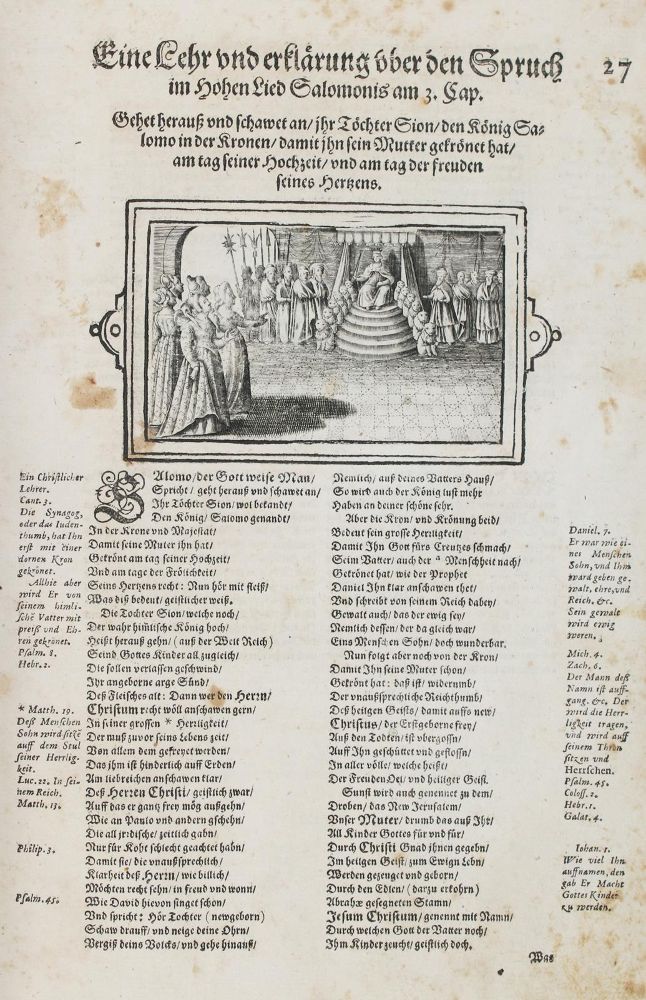 Eine Lehr vnd erklärung vber den Spruch
27
im Hohen Lied Salomonis am 3. Cap.
Gehet herauß vnd schawet an/ jhr Töchter Sion/ den König Sa-
lomo in der Kronen/ damit jhn sein Mutter gekrönet hat/
am tag seiner Hochzeit/ vnd am tag der freuden
seines Hertzens.
Ein Christlicher
Lehrer.
Cant. 3.
Die Synagog,
oder das Iuden-
thumb, hat Ihn
erst mit einer
dornen Kron
gekrönet.
Allhie aber
wird Er von
seinem himli-
schē Vatter mit
preiß vnd Eh-
ren gekrönet.
Psalm. 8.
Hebr. 2.
* Matth. 19.
Deß Menschen
Sohn wird sitzē
auff dem Stul
seiner Herrlig-
keit.
Luc. 22. In sei-
nem Reich.
Matth. 13.
Philip. 3.
Psalm. 45.
SAlomo/ der Gott weise Man/
Spricht/ geht herauß vnd schawet an/
Ihr Töchter Sion/ wol bekandt/
Den König/ Salomo genandt/
In der Krone vnd Majestat/
Damit seine Muter jhn hat/
Gekrönt am tag seiner Hochzeit/
Vnd am tage der Frölichkeit/
Seins Hertzens recht: Nun hör mit fleiß/
Was diß bedeut/ geistlicher weiß.
Die Töchter Sion/ welche noch/
Der wahr himlische König hoch/
Heißt herauß gehn/ (auß der Welt Reich)
Seind Gottes Kinder all zugleich/
Die sollen verlassen geschwind/
Ihr angeborne arge Sünd/
Deß Fleisches alt: Dann wer den Herrn/
Christum recht wöll anschawen gern/
In seiner grossen * Herrligkeit/
Der muß zuvor seins Lebens zeit/
Von allem dem gefreyet werden/
Das jhm ist hinderlich auff Erden/
Am liebreichen anschawen klar/
Deß Herren Christi/ geistlich zwar/
Auff das er gantz frey mög außgehn/
Wie an Paulo vnd andern gschehn/
Die all jrdische/ zeitlich gabn/
Nur für Koht schlecht geachtet habn/
Damit sie/ die vnaußsprechlich/
Klarheit deß Herrn/ wie billich/
Möchten recht sehn/ in freud vnd wonn/
Wie David hievon singet schon/
Vnd spricht: Hör Tochter (newgeborn)
Schaw drauff/ vnd neige deine Ohrn/
Vergiß deins Volcks/ vnd gehe hinauß/
Nemlich/ auß deines Vatters Hauß/
So wird auch der König lust mehr
Haben an deiner schöne sehr.
Aber die Kron/ vnd Krönung beid/
Bedeut sein grosse Herrligkeit/
Damit Ihn Gott fürs Creutzes schmach/
Seim Vatter/ auch der a Menschheit nach/
Gekrönet hat/ wie der Prophet
Daniel Ihn klar anschawen thet/
Vnd schreibt von seinem Reich dabey/
Gewalt auch/ das der ewig sey/
Nemlich dessen/ der da gleich war/
Eins Menschen Sohn/ doch wunderbar.
Nun folgt aber noch von der Kron/
Damit Ihn seine Muter schon/
Gekrönt hat: daß ist/ widerumb/
Der vnaußsprechliche Reichthumb/
Deß heilgen Geists/ damit auffs new/
Christus/ der Erstgeborne frey/
Auß den Todten/ ist vbergossn/
Auff Ihn geschüttet vnd geflossn/
In aller völle/ welche heißt/
Der Freuden Oel/ vnd heiliger Geist.
Sunst wird auch genennet zu dem/
Droben/ das New Jerusalem/
Vnser Muter/ drumb das auß Ihr/
All Kinder Gottes für vnd für/
Durch Christi Gnad jhnen gegebn/
Im heilgen Geist/ zum Ewign Lebn/
Werden gezeuget vnd geborn/
Durch den Edlen (darzu erkohrn)
Abrahæ gesegneten Stamn/
Jesum Christum/ genennt mit Namn/
Durch welchen Gott der Vatter noch/
Ihm Kinder zeucht/ geistlich doch.
Daniel. 7.
Er war wie ei-
nes Menschen
Sohn, vnd Ihm
ward geben ge-
walt, ehre, vnd
Reich, &c.
Sein gewalt
wird ewig
weren.
Mich. 4.
Zach. 6.
Der Mann deß
Namn ist auff-
gang, &c. Der
wird die Herr-
ligkeit tragen,
vnd wird auff
seinem Thron
sitzen vnd
Herrschen.
Psalm. 45.
Coloss. 2.
Hebr. 1.
Galat. 4.
Iohan. 1.
Wie viel Ihn
auffnamen, den
gab Er Macht
Gottes Kinder
zu werden.
Was